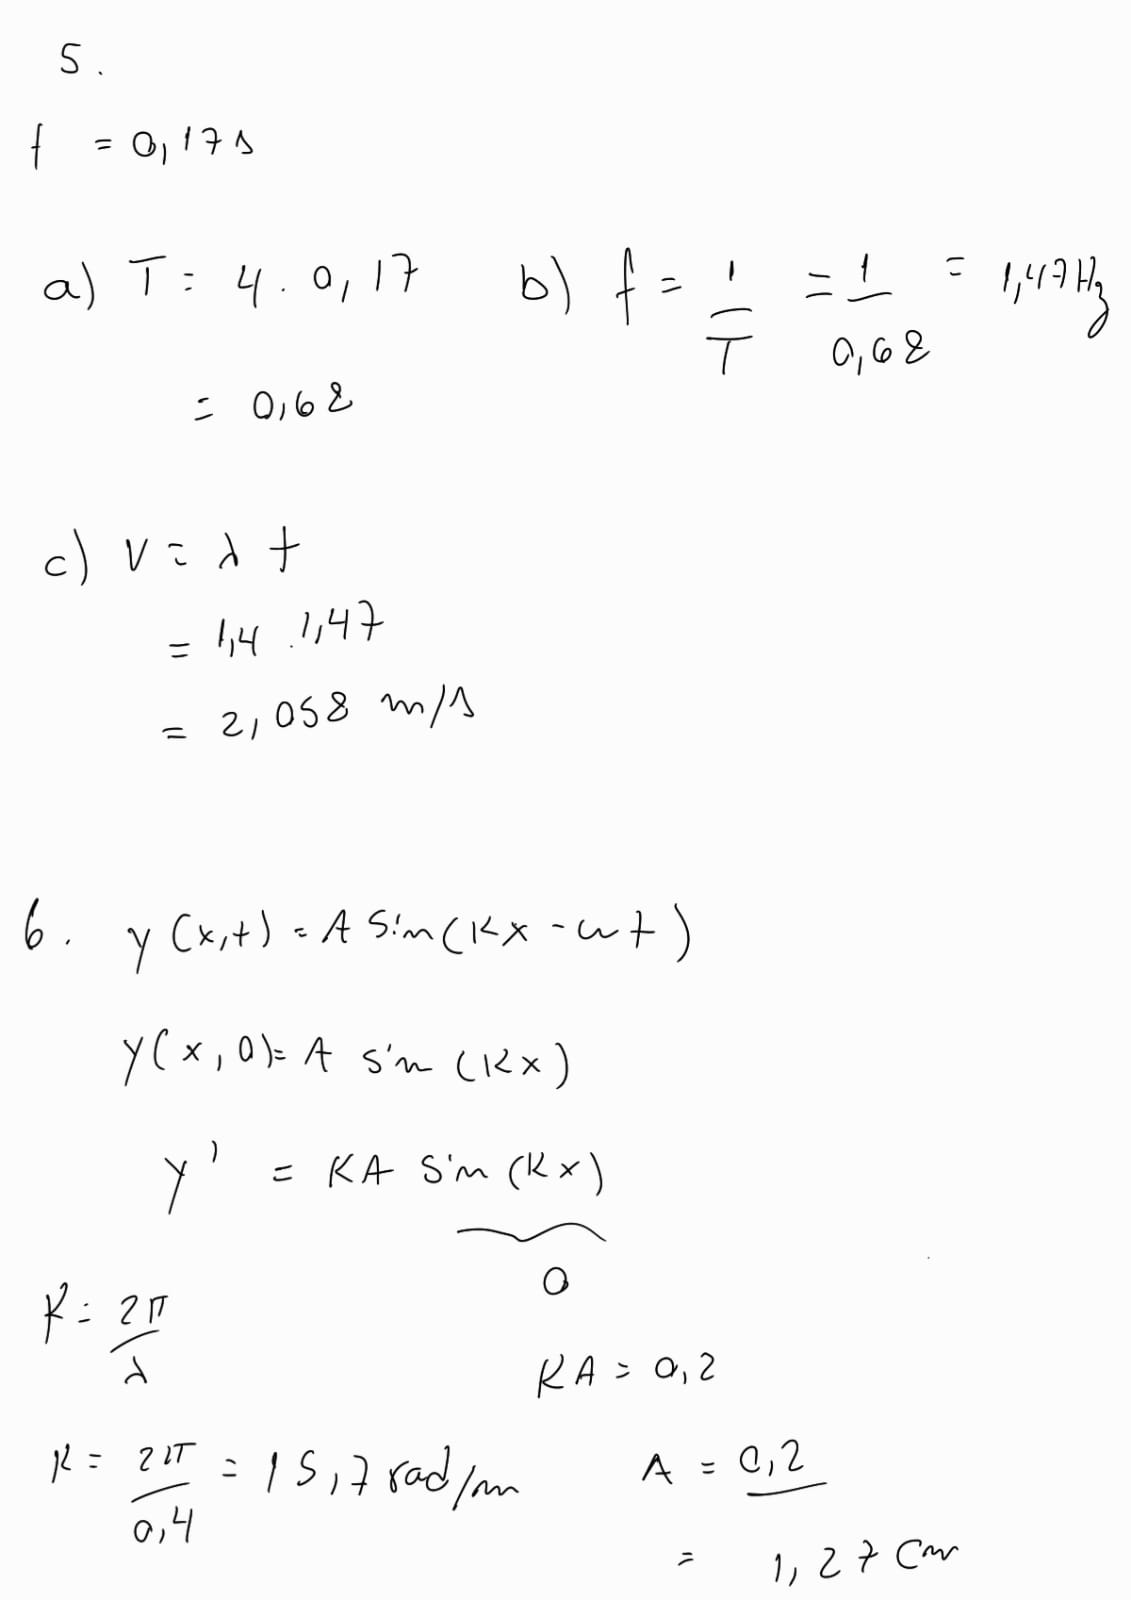 5.
f = 0,17s
a) T = 4 . 0,17 b) f = 1/T = 1/0,68 = 1,47Hz
= 0,68
c) v = λ f
= 1,4 . 1,47
= 2,058 m/s
6. y(x,t) = A sin(Kx - ωt)
y(x,0) = A sin (Kx)
y' = KA sin (Kx)
0
K = 2π/λ
KA = 0,2
K = 2π/0,4 = 15,7 rad/m A = 0,2
= 1,27 cm